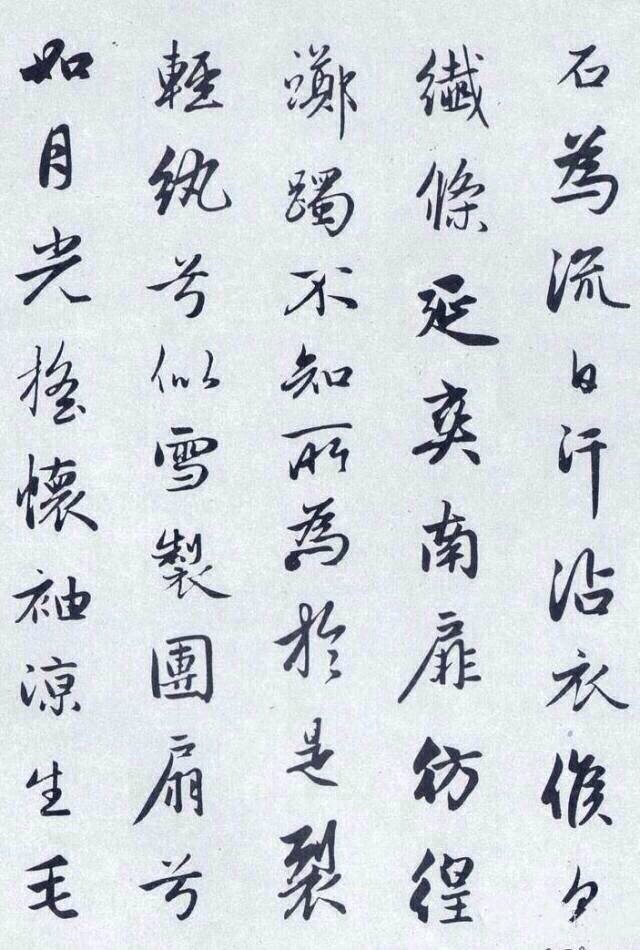 石為流日汗沾衣候夕
纖條延爽南扉彷徨
躑躅不知所為於是裂
輕紈兮似雪製團扇兮
如月光搖懷袖凉生毛